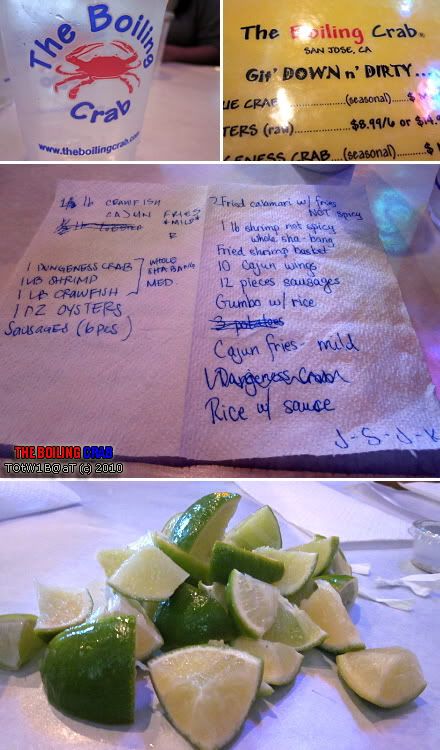 The Boiling
Crab
www.theboilingcrab.com
The Boiling Crab®
SAN JOSE, CA
Git' DOWN n' DIRTY...
UE CRAB (seasonal)
TERS (raw) $8.99/6 or
GENESS CRAB...(seasonal)
lb CRAWFISH
CAJUN FRIES
MILD
1 DUNGENESS CRAB
1 LB SHRIMP
1 LB CRAWFISH
WHOLE
SHA BANG
MED.
1 DZ OYSTERS
Sausages (6 pcs)
Fried calamari w/ fries
NOT spicy
1 lb shrimp not spicy
whole sha-bang
Fried shrimp basket
10 Cajun wings
12 pieces sausages
Gumbo w/ rice
3 potatoes
Cajun fries - mild
Rice w/ sauce
J-S-J-K
THE BOILING CRAB
TOtW1B@aT (c) 2010